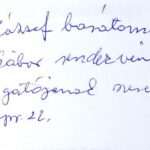 József barátom
Gábor rendezvén
gatójának
ápr. 22.